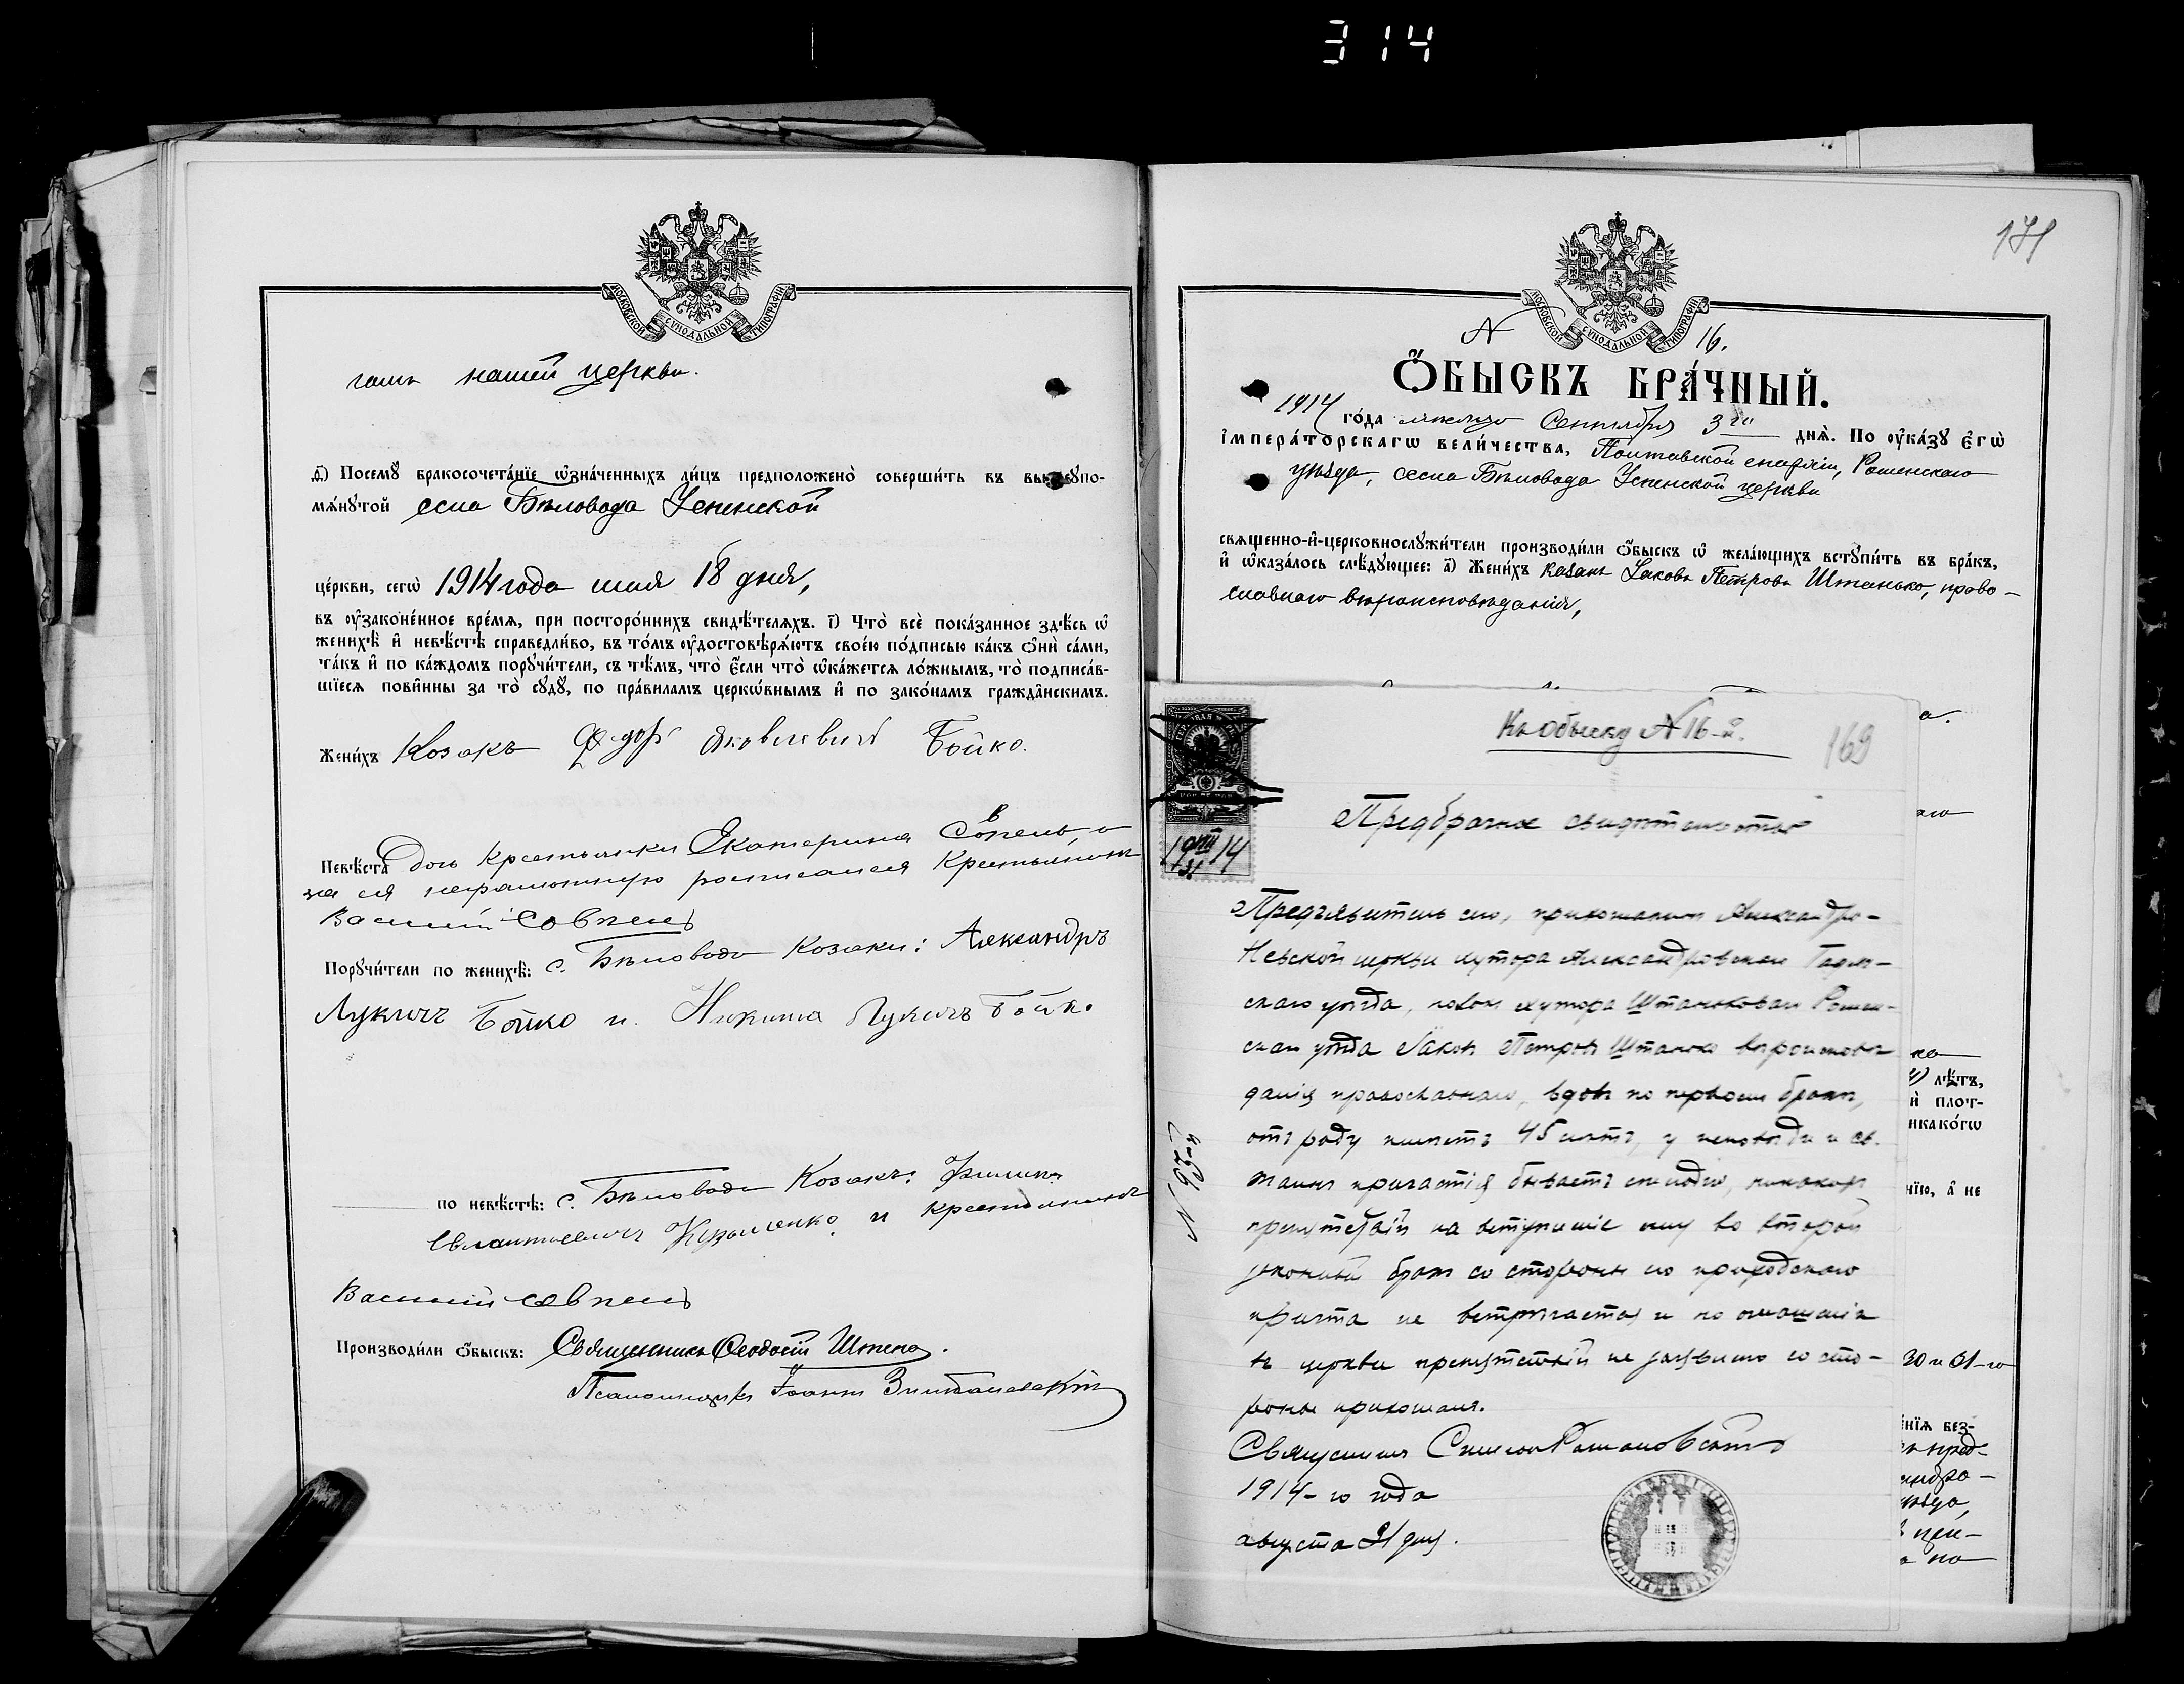 314
МОСКОВСКОЙ СУНОДАЛЬНОЙ ТИПОГРАФІИ
гамъ нашей церкви.
д҃) Посемꙋ бракосочета́нїе ѡ҆зна́ченныхъ ли́цъ предположено̀ соверши́ть въ вышеꙋпо-
мѧ́нꙋтой села Бѣловода Успенской
це́ркви, сегѡ̀ 1914 года мая 18 дня,
въ ᲂу҆зако́не́нное вре́мѧ, при посторо́ннихъ свидѣ́телѧхъ. і҃) Что̀ всѐ пока́занное здѣ́сь ѡ҆
женихѣ̀ и҆ невѣ́стѣ справедли́во, въ то́мъ ᲂу҆достовѣрѧ́ютъ свое́ю по́дписью ка́къ ѻ҆нѝ са́ми,
та́къ и҆ по ка́ждомъ порꙋчи́тели, съ тѣ́мъ, что̀ є҆́сли что̀ ѡ҆ка́жется ло́жнымъ, то̀ подписа́в-
шїеся пови́нны за то̀ сꙋдꙋ̀, по пра́виламъ церко́внымъ и҆ по зако́намъ гражда́нскимъ.
Жени́хъ Козакъ Федоръ Яковлевичъ Бойко.
Невѣ́ста Дочь крестьянки Екатерина Совпель, а
за ея неграмотную росписался Крестьянинъ
Василий Совпель
Порꙋчи́тели по женихѣ̀: с. Бѣловода Козаки: Александръ
Лукичъ Бойко и. Никита Лукичъ Бойко
по невѣ́стѣ: с. Бѣловода Козакъ: Филипъ
Евлампиевичъ Кузменко и крестьянинъ
Василий Совпель
Производи́ли ѻ҆́быскъ: Священникъ Ѳеодосій
Псаломщикъ Іоаннъ
171
МОСКОВСКОЙ СУНОДАЛЬНОЙ ТИПОГРАФІИ
N 16.
Ѻ҆́БЫСКЪ БРА́ЧНЫЙ.
1914 го́да мѣсяца Сентября 3го днѧ̀. По ᲂу҆ка́зꙋ є҆гѡ̀
і҆мпера́торскагѡ вели́чества, Полтавской епархіи, Роменскаго
уѣзда, села Бѣловода Успенской церкви
свѧще́нно-и҆-церковнослꙋжи́тели производи́ли ѻ҆́быскъ ѡ҆ жела́ющихъ встꙋпи́ть въ бра́къ,
и҆ ѡ҆каза́лось слѣ́дꙋющее: а҃) Жени́хъ казакъ Іаковъ Петровъ Штанько, право-
славнаго вѣроисповѣданія,
Къ обыску N 16-й.
169
1914
VIII
31
Предбрачное свидѣтельство
Предъявитель сего, прихожанинъ Александро-
Невской церкви хутора Александровскаго
скаго уѣзда, козакъ хутора Штанькова Ромен-
скаго уѣзда Іаковъ Петровъ Штанько вѣроисповѣ
данія православнаго, вдовъ по первомъ бракѣ,
отъ роду имѣетъ 45 лѣтъ, у исповѣди и св.
таинъ причастія бываетъ ежегодно, никакихъ
препятствій на вступленіе ему во второй
законный бракъ со стороны его приходскаго
причта не встрѣчается и по оглашеніи
въ церкви препятствій не заявлено со сто-
роны прихожанъ.
Священникъ Симеонъ Романовскій
1914-го года
августа 31 дня.
N 193-й
а.
аго
ка
лѣ́тъ,
и҆ пло́т-
ника ко́гѡ
нїю, а҆ не
30 и 31-го
е́нїѧ без-
пред-
андро-
уѣзда,
при-
по